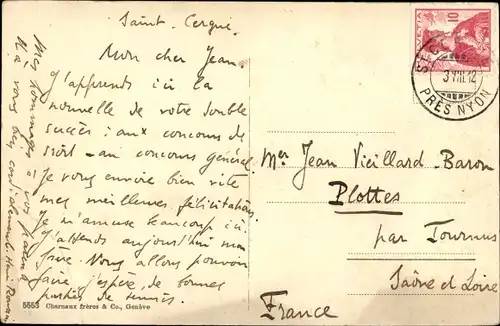 Saint-Cergue
Mon cher Jean,
J'apprends ici la
nouvelle de votre double
succès : aux concours de
droit - au concours général
Je vous envoie bien vite
mes meilleures félicitations
Je m'amuse beaucoup ici
J'attends aujourd'hui mon
frère. Nous allons pouvoir
faire, j'espère, de bonnes
parties de tennis.
Mes hommages à vos parents
A vous bien cordialement Henri
Mr Jean Vieillard-Baron
Plottes
par Tournus
Saône et Loire
France
HELVETIA
10
3 VIII.12
PRÈS NYON
5553 Charnaux frères & Co., Genève